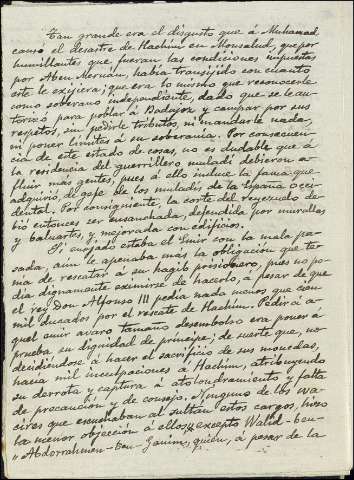 Tan grande era el disgusto que á Muhamad
causó el desastre de Hachim en Monsalud, que por
humillantes que fueran las condiciones impuestas
por Aben Meruán, había transijido con cuanto
este le exijiera; que era lo mismo que reconocerle
como soberano independiente, desde que se le au-
torizó para poblar á Badajoz y campar por sus
respetos, sin pedirle tributos, ni mandarle nada,
ni poner límites á su soberanía. Por consecuen-
cia de este estado de cosas, no es dudable que á
la residencia del guerrillero muladí debieron a-
fluir más gentes, pues á ello induce la fama que
adquirió, de gefe de los muladís de la España occi-
dental. Por consiguiente, la corte del reyezuelo de-
bió entonces ser ensanchada, defendida por murallas
y baluartes, y mejorada con edificios.
Si enojado estaba el Emir con la mala pa-
sada, aún le apenaba más la obligación que te-
nía de rescatar á su hagib prisionero, pues no po-
día dignamente eximirse de hacerlo, á pesar de que
el rey Don Alfonso III pedía nada menos que cien
mil ducados por el rescate de Hachim. Pedir á a-
quel emir avaro tamaño desembolso era poner á
prueba su dignidad de príncipe; de suerte que, no
decidiéndose á hacer el sacrificio de sus monedas,
hacía mil inculpaciones á Hachim, atribuyendo
su derrota y captura á atolondramiento y falta
de precaución y de consejo. Ninguno de los wa-
cires que escuchaban al sultán estos cargos, hizo
la menor objeción á ellos, excepto Walid-ben-
Abdorrahmen-ben-Ganim, quien, á pesar de la